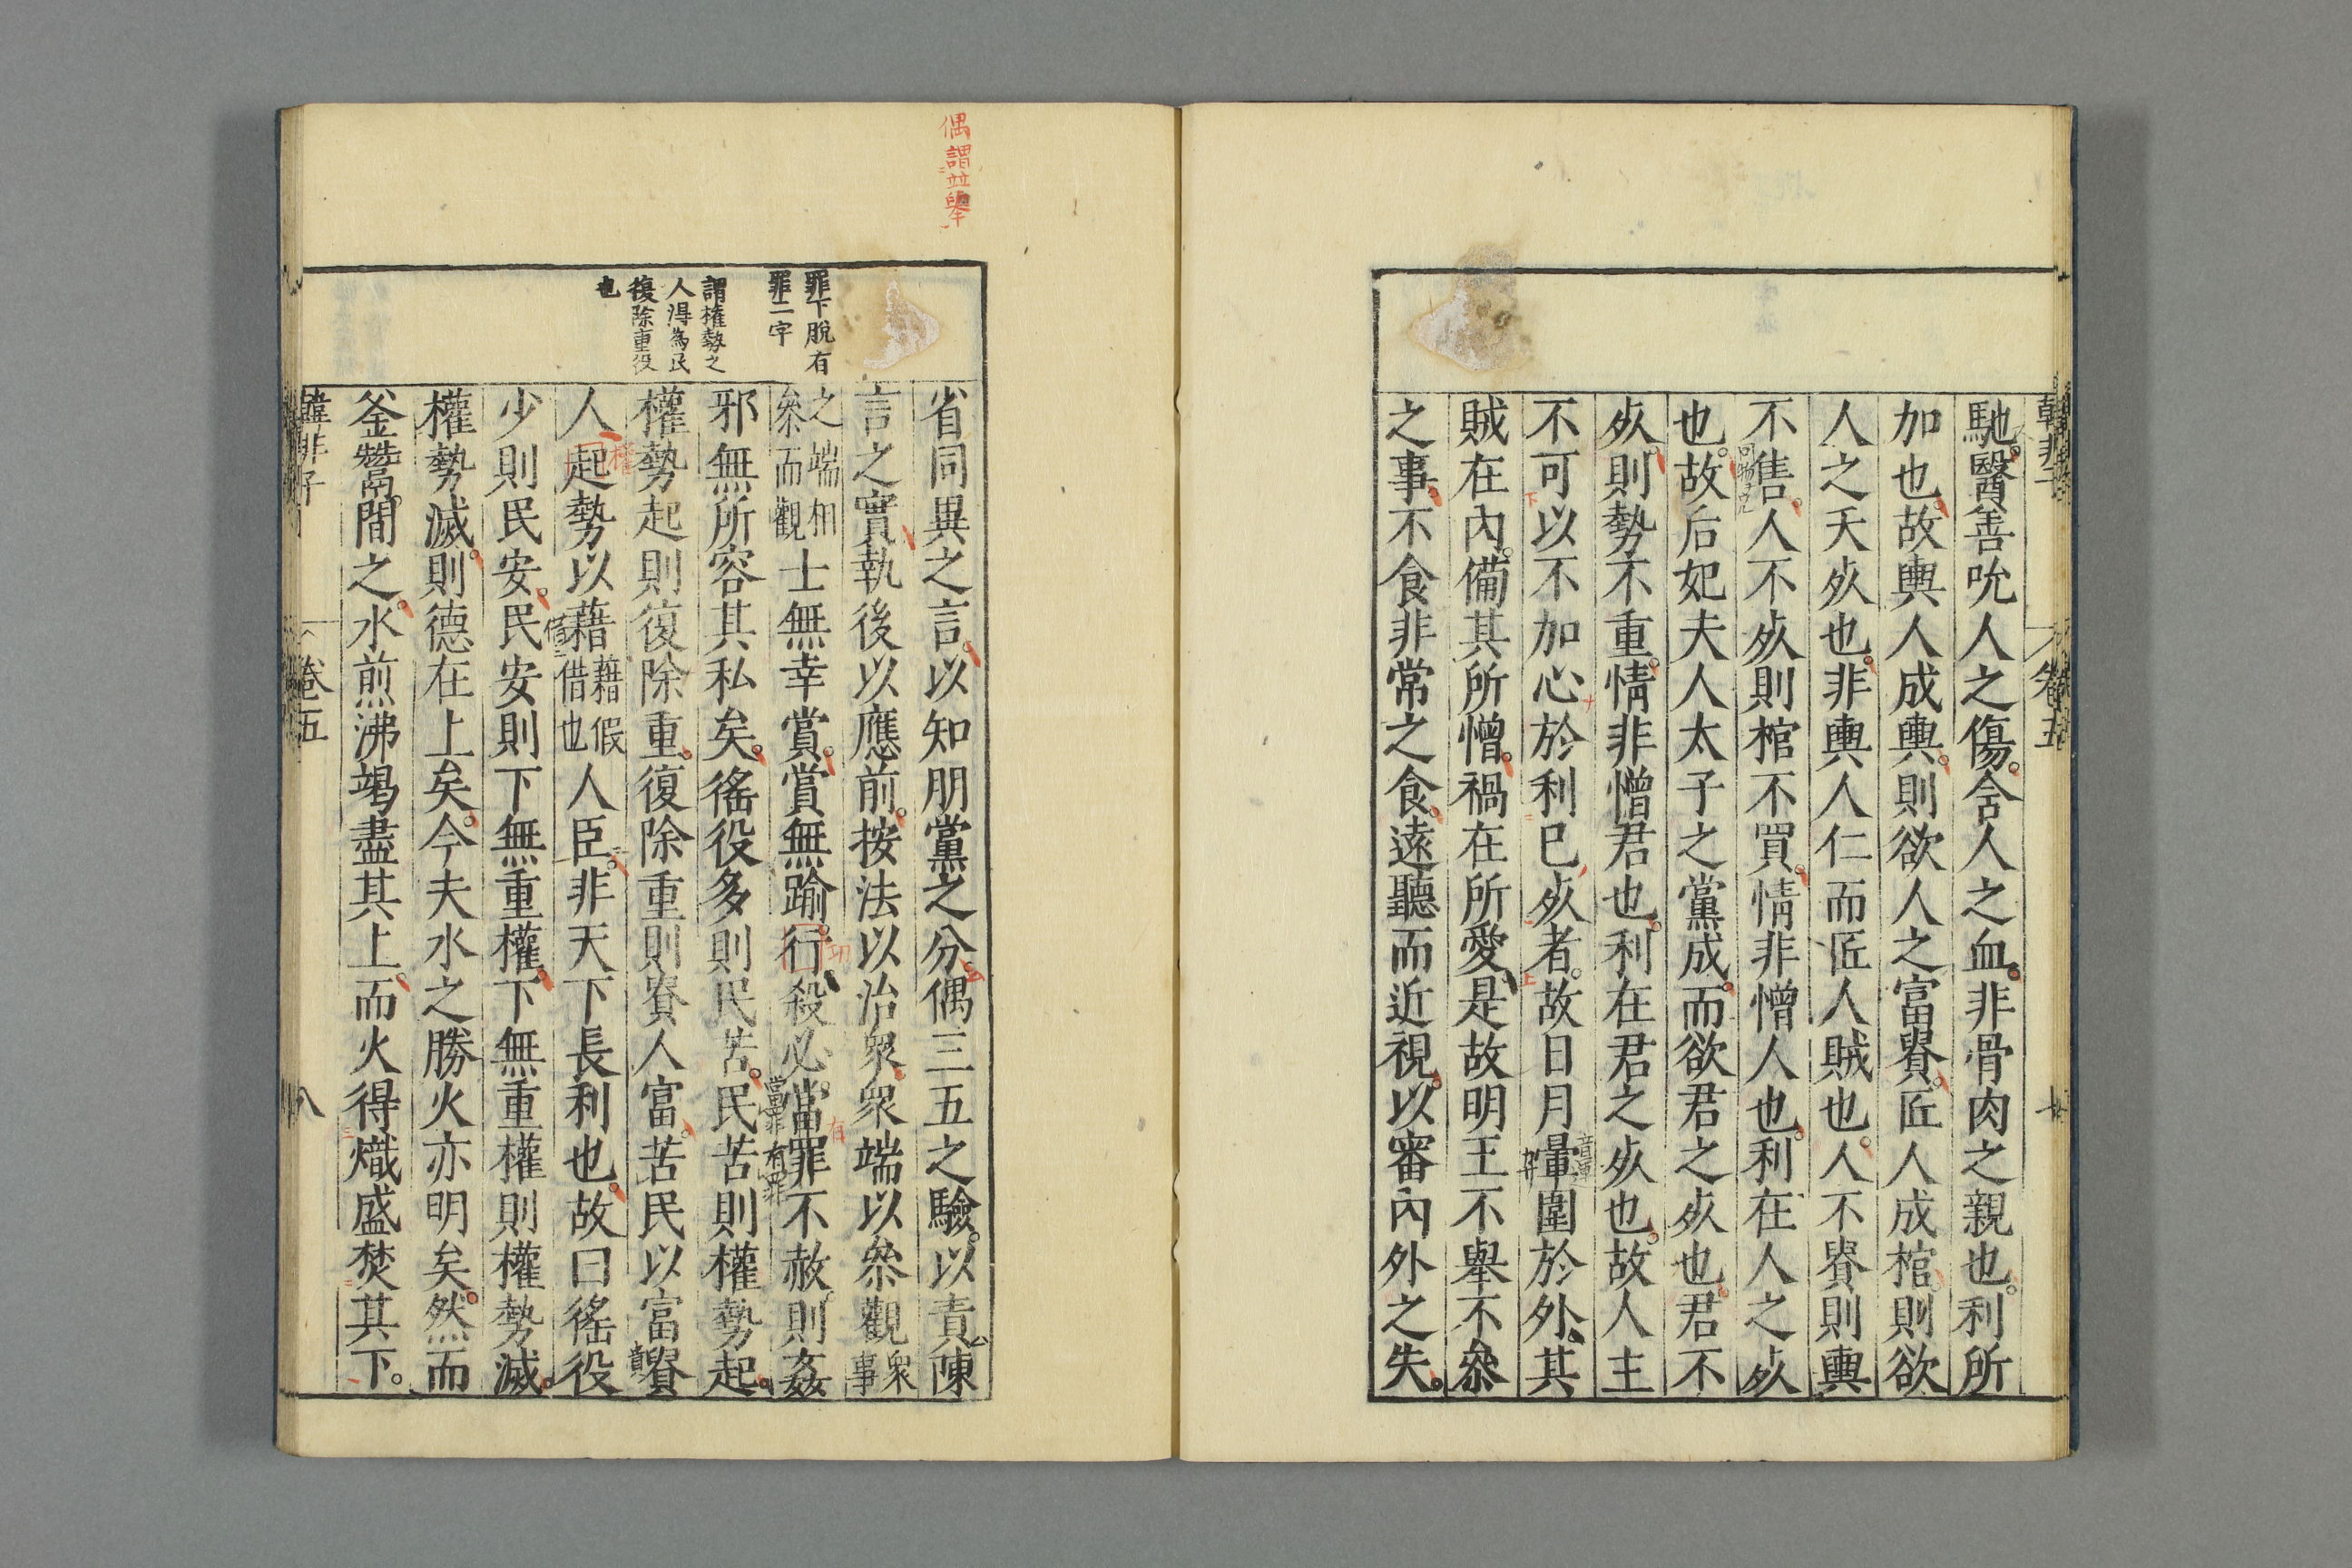 馳醫善吮人之傷含人之血非骨肉之親也利所
加也故輿人成輿則欲人之富貴匠人成棺則欲
人之夭死也非輿人仁而匠人賊也人不貴則輿
不售人不死則棺不買情非憎人也利在人之死
也故后妃夫人太子之黨成而欲君之死也君不
死則勢不重情非憎君也利在君之死也故人主
不可以不加心於利己死者故日月暈圍於外其
賊在內備其所憎禍在所愛是故明王不舉不參
之事不食非常之食遠聽而近視以審內外之失
韓非子
卷五
偶謂並舉
罪下脫有
罪二字
謂權勢之
人得為民
復除重役
也
省同異之言以知朋黨之分偶三五之驗以責陳
言之實執後以應前按法以治衆衆端以參觀衆事
之端相參而觀士無幸賞賞無踰行殺必當罪不赦則姦
邪無所容其私矣徭役多則民苦民苦則權勢起
權勢起則復除重復除重則貴人富苦民以富貴
人起勢以藉藉假借也人臣非天下長利也故曰徭役
少則民安民安則下無重權下無重權則權勢滅
權勢滅則德在上矣今夫水之勝火亦明矣然而
釜鬵間之水煎沸竭盡其上而火得熾盛焚其下
韓非子
卷五
八